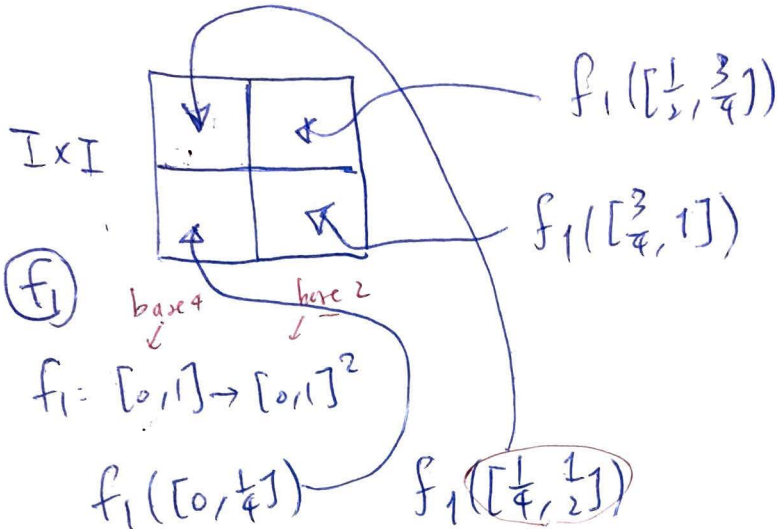 f₁([1/2, 3/4])
I × I
f₁([3/4, 1])
f₁
base 4 base 2
f₁: [0,1] → [0,1]²
f₁([0, 1/4]) f₁([1/4, 1/2])